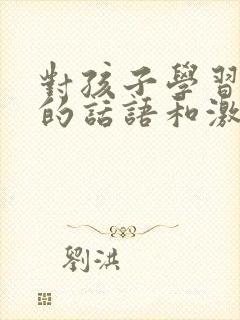 對孩子學習
的話語和激
劉洪